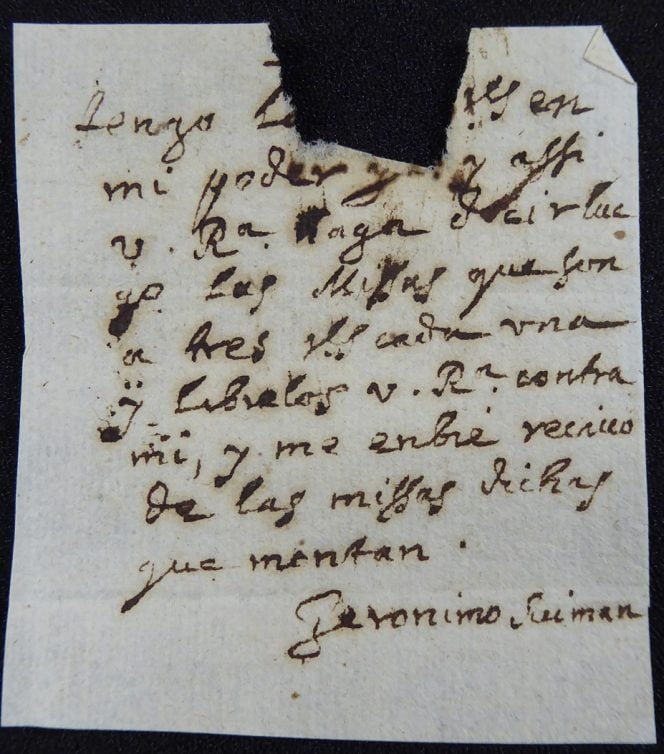 tengo rs en
mi poder y assi
v. Ra. haga decir lue
go las Missas que son
a tres rs cada una
y librelos v. Ra contra
mi, y me enbie reciuo
de las missas dichas
que montan.
Geronimo